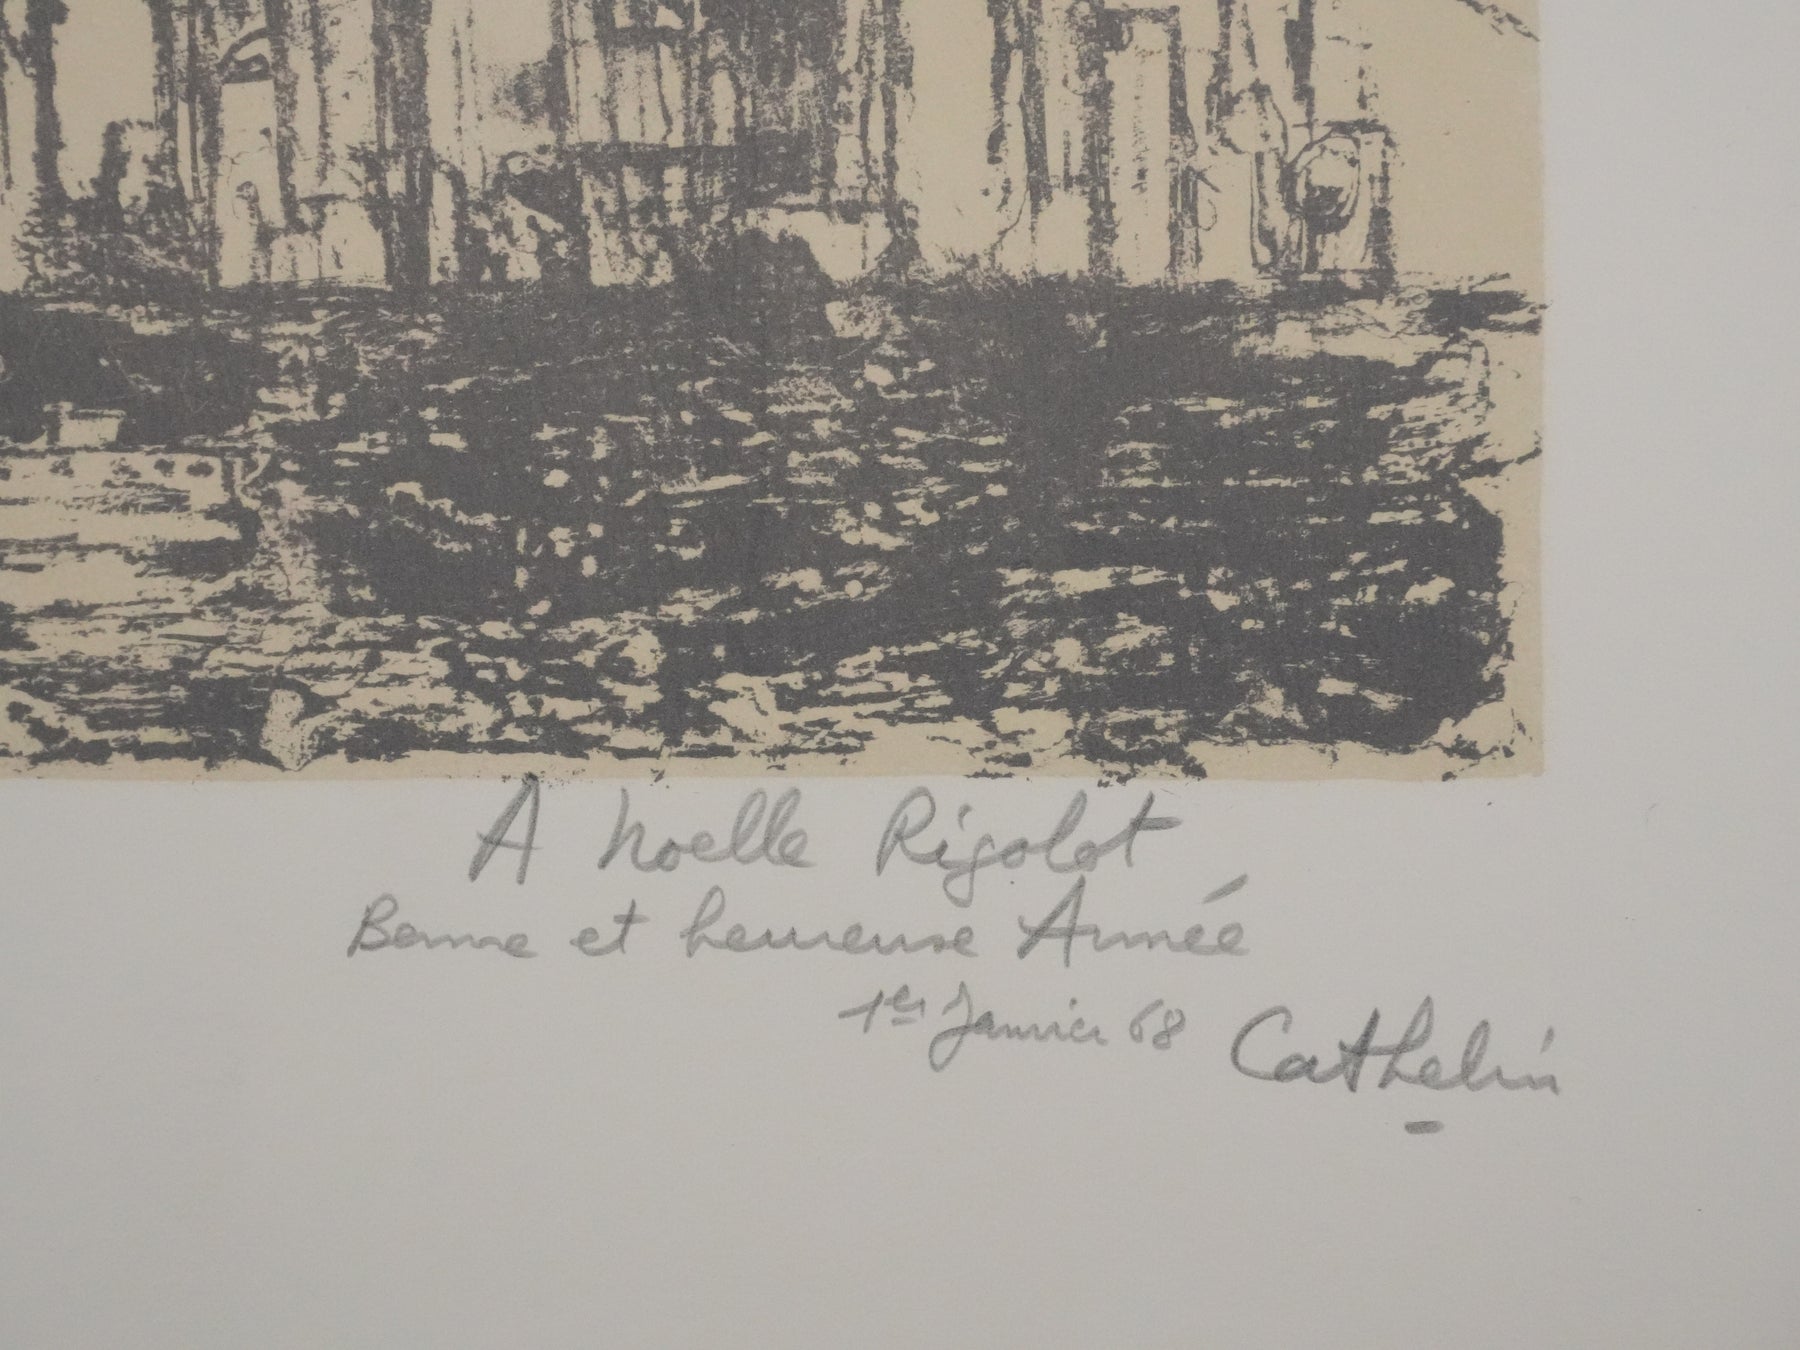 A Noelle Rigolot
Bonne et heureuse Année
1er Janvier 68
Cathelin